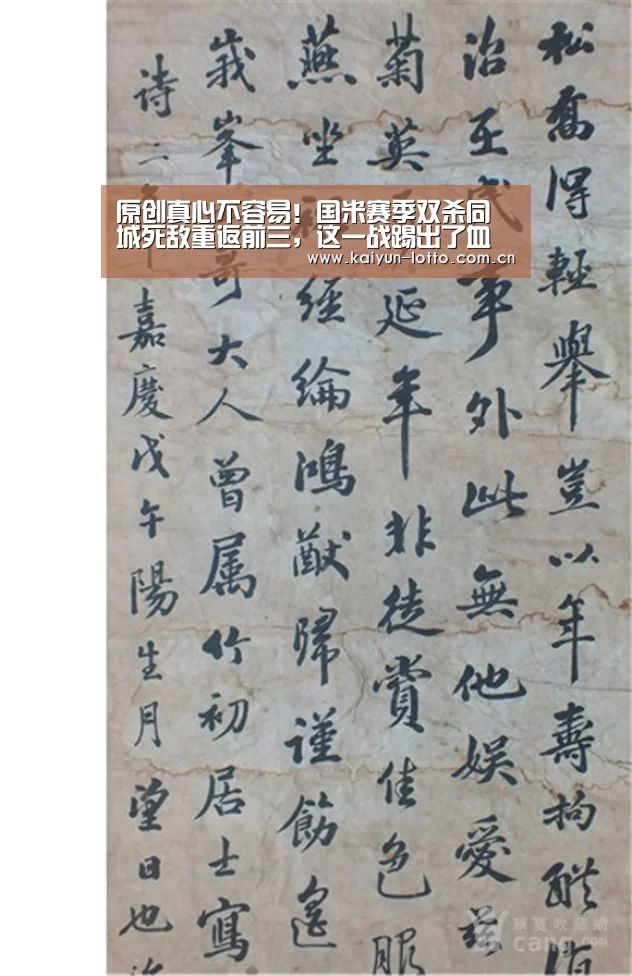 原创真心不容易！国米赛季双杀同
城死敌重返前三，这一战踢出了血
www.kaiyun-lotto.com.cn
松喬得輕舉豈以年壽拘
治民事外此無他娱愛茲
菊英延年非徒賞佳色服
燕坐經綸鴻猷歸謹飭
峩峯哥大人曾属竹初居士寫
詩二嘉慶戊午陽生月望日也
華夏收藏網
cang.com